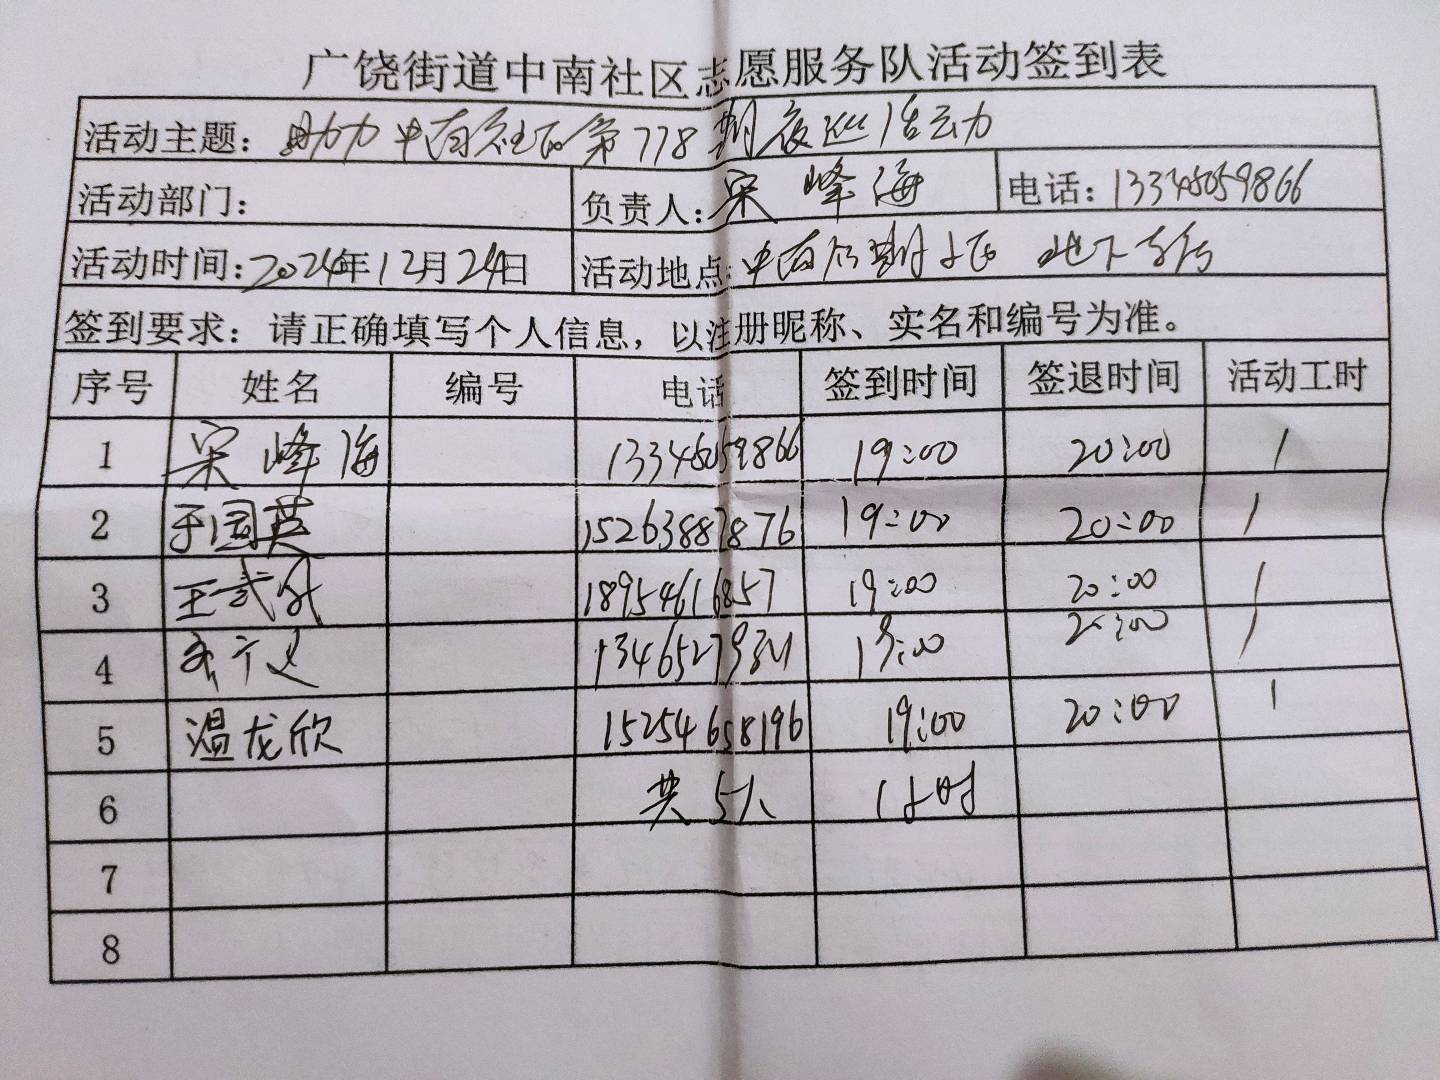 广饶街道中南社区志愿服务队活动签到表
活动主题：助力中南社区第778期夜巡活动
活动部门： 负责人：宋峰海 电话：13345059866
活动时间：2024年12月24日 活动地点：中南 地下
签到要求：请正确填写个人信息，以注册昵称、实名和编号为准。
序号 姓名 编号 电话 签到时间 签退时间 活动工时
1 宋峰海 13345059866 19:00 20:00 1
2 于国英 15263887876 19:00 20:00 1
3 王武 18954616857 19:00 20:00 1
4 19:00 20:00 1
5 温龙欣 15254658196 19:00 20:00 1
6 共5人 1小时
7
8